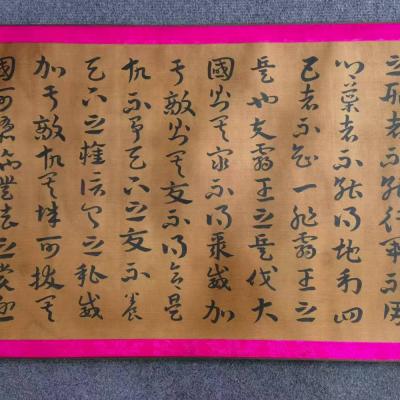 之形者不能行軍不用
鄉導者不能得地利四
五者不知一非霸王之
兵也夫霸王之兵伐大
國則其眾不得聚威加
于敵則其交不得合是
故不爭天下之交不養
天下之權信己之私威
加于敵故其城可拔其
國可隳